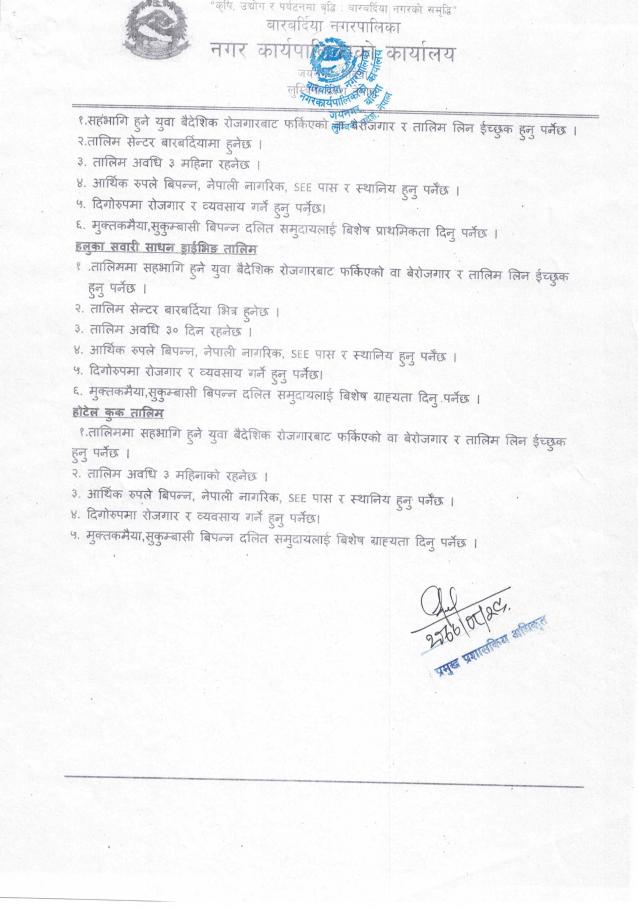 "कृषि, उद्योग र पर्यटनमा बृद्धि : बारबर्दिया नगरको समृद्धि"
बारबर्दिया नगरपालिका
नगर कार्यपालिकाको कार्यालय
बारबर्दिया नगरपालिका
नगरकार्यपालिकाको कार्यालय
जयनगर, बर्दिया
१.सहभागि हुने युवा बैदेशिक रोजगारबाट फर्किएको वा बेरोजगार र तालिम लिन ईच्छुक हुनु पर्नेछ ।
२.तालिम सेन्टर बारबर्दियामा हुनेछ ।
३. तालिम अवधि ३ महिना रहनेछ ।
४. आर्थिक रुपले बिपन्न, नेपाली नागरिक, SEE पास र स्थानिय हुनु पर्नेछ ।
५. दिगोरुपमा रोजगार र व्यवसाय गर्ने हुनु पर्नेछ।
६. मुक्तकमैया,सुकुम्बासी बिपन्न दलित समुदायलाई बिशेष प्राथमिकता दिनु पर्नेछ ।
हलुका सवारी साधन ड्राईभिङ तालिम
१ .तालिममा सहभागि हुने युवा बैदेशिक रोजगारबाट फर्किएको वा बेरोजगार र तालिम लिन ईच्छुक
हुनु पर्नेछ ।
२. तालिम सेन्टर बारबर्दिया भित्र हुनेछ ।
३. तालिम अवधि ३० दिन रहनेछ ।
४. आर्थिक रुपले बिपन्न, नेपाली नागरिक, SEE पास र स्थानिय हुनु पर्नेछ ।
५. दिगोरुपमा रोजगार र व्यवसाय गर्ने हुनु पर्नेछ।
६. मुक्तकमैया,सुकुम्बासी बिपन्न दलित समुदायलाई बिशेष ग्राह्यता दिनु पर्नेछ ।
होटेल कुक तालिम
१.तालिममा सहभागि हुने युवा बैदेशिक रोजगारबाट फर्किएको वा बेरोजगार र तालिम लिन ईच्छुक
हुनु पर्नेछ ।
२. तालिम अवधि ३ महिनाको रहनेछ ।
३. आर्थिक रुपले बिपन्न, नेपाली नागरिक, SEE पास र स्थानिय हुनु पर्नेछ ।
४. दिगोरुपमा रोजगार र व्यवसाय गर्ने हुनु पर्नेछ।
५. मुक्तकमैया,सुकुम्बासी बिपन्न दलित समुदायलाई बिशेष ग्राह्यता दिनु पर्नेछ ।
प्रमुख प्रशासकिय अधिकृत